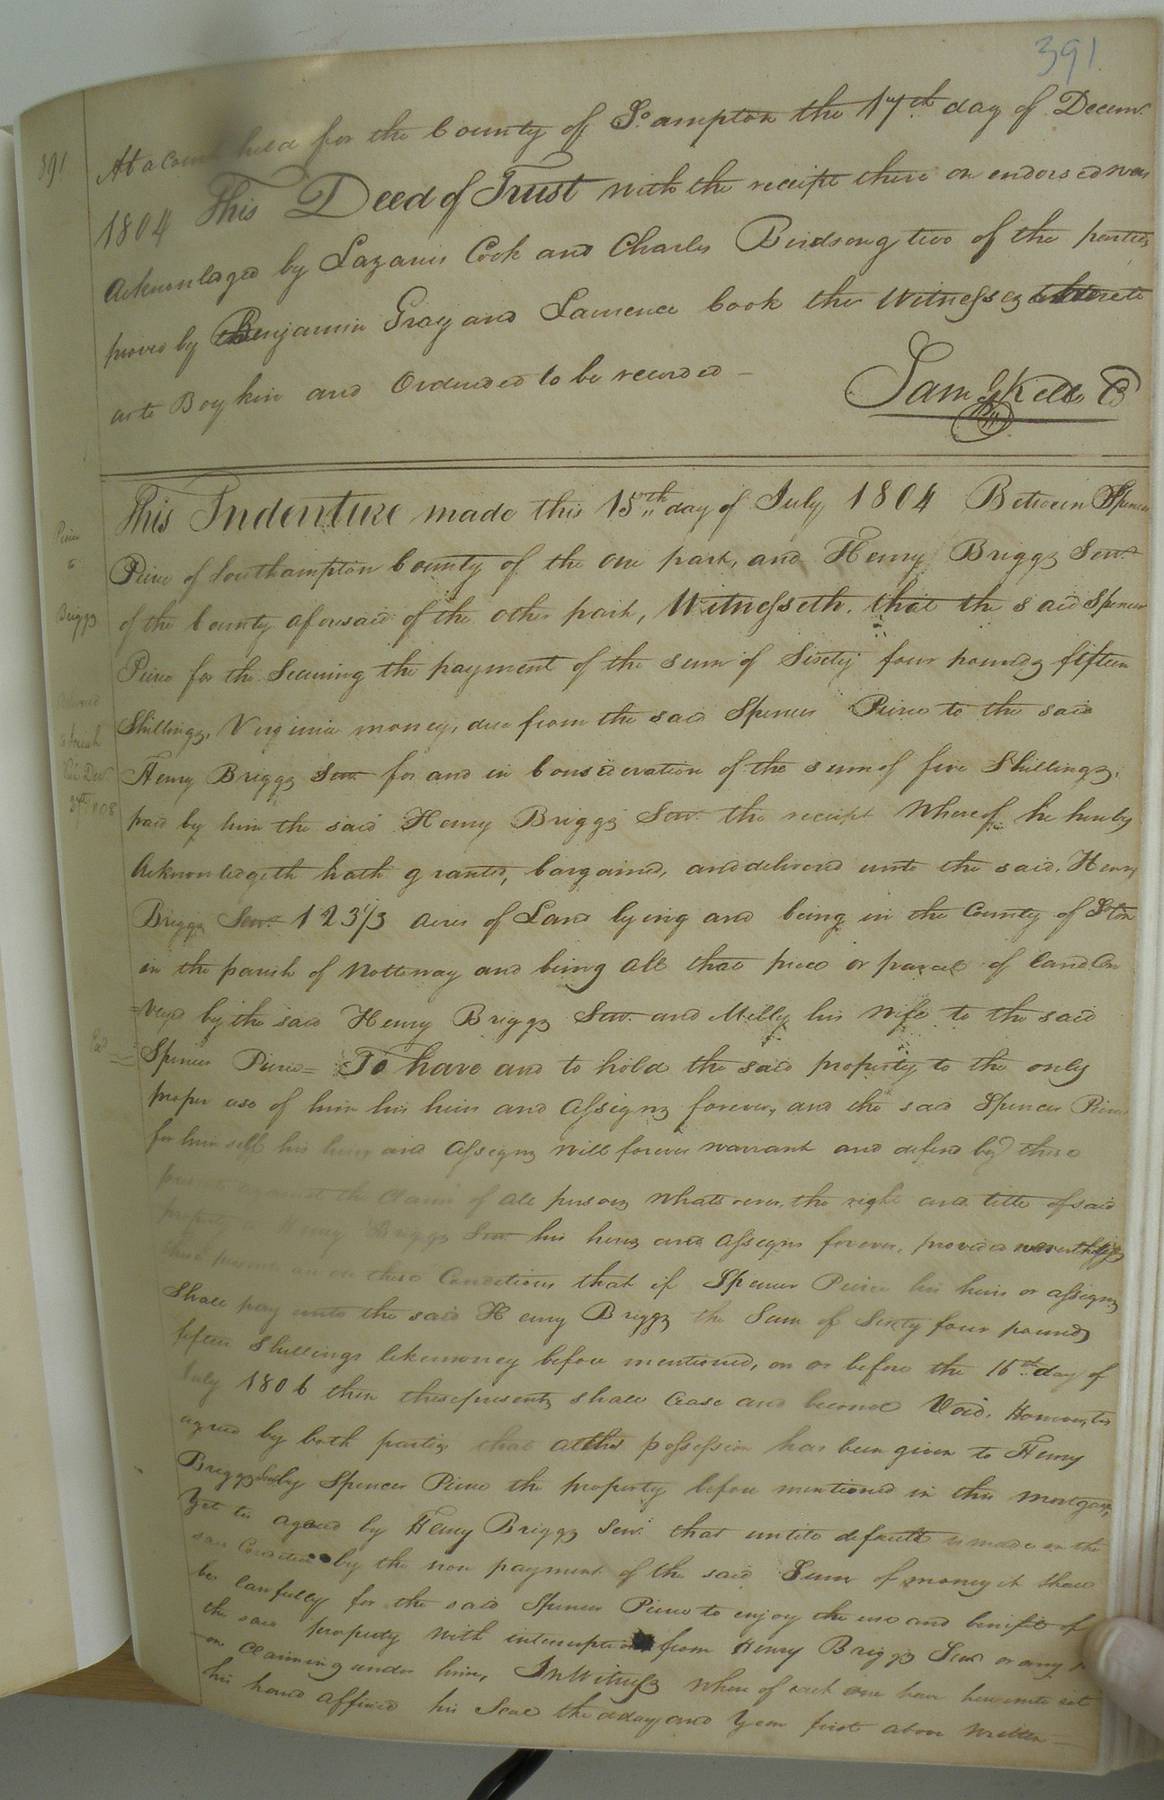 391.
391
At a Court held for the County of So.ampton the 17th day of Decemr.
1804 This Deed of Trust with the receipt there on endorsed was
Acknowlaged by Lazarus Cook and Charles Birdsong two of the parties
proved by Benjamin Gray and Laurence Cook the Witnesses
as to Boykin and Ordered to be recorded —
Saml Kello
This Indenture made this 15th day of July 1804 Between Spencer
Pierce
to
Briggs
Pierce of Southampton County of the one part, and Henry Briggs Senr.
of the County aforesaid of the other part, Witnesseth, that the said Spencer
Pierce for the Securing the payment of the sum of Sixty four pounds fifteen
Shillings, Virginia money, due from the said Spencer Pierce to the said
Henry Briggs Senr for and in Consideration of the sum of five Shillings,
paid by him the said Henry Briggs Senr. the receipt Whereof he hereby
Acknowledgeth hath granted, bargained, and delivered unto the said, Henry
Briggs Senr. 123 1/3 acres of Land lying and being in the County of So.ton
in the parish of Nottoway and being all that piece or parcel of land Con
=veyd by the said Henry Briggs Senr. and Milly his Wife to the said
Spencer Pierce = To have and to hold the said property to the only
proper use of him his heirs and Assigns forever, and the said Spencer Pierce
for him self his heirs and Assigns will forever warrant and defend by these
presents against the Claim of all persons whatsoever, the right and title of said
property Henry Briggs Senr his heirs and Assigns forever, provided nevertheless
these presents are on these Conditions that if Spencer Pierce his heirs or assigns
Shall pay unto the said Henry Briggs the Sum of Sixty four pounds
fifteen Shillings like money before mentioned, on or before the 15th day of
July 1806 then these presents shall Cease and become Void, However, tis
agreed by both parties that altho possession has been given to Henry
Briggs Senr by Spencer Pierce the property before mentioned in this mortgage,
Yet tis agreed by Henry Briggs Senr. that untill default is made in the
said Condition by the non payment of the said Sum of money it shall
be lawfully for the said Spencer Pierce to enjoy the use and benifit of
the said property With interruption from Henry Briggs Senr or any
claiming under him, In Witness where of each one have hereunto set
his hand affixed his Seal the day and Year first above written —